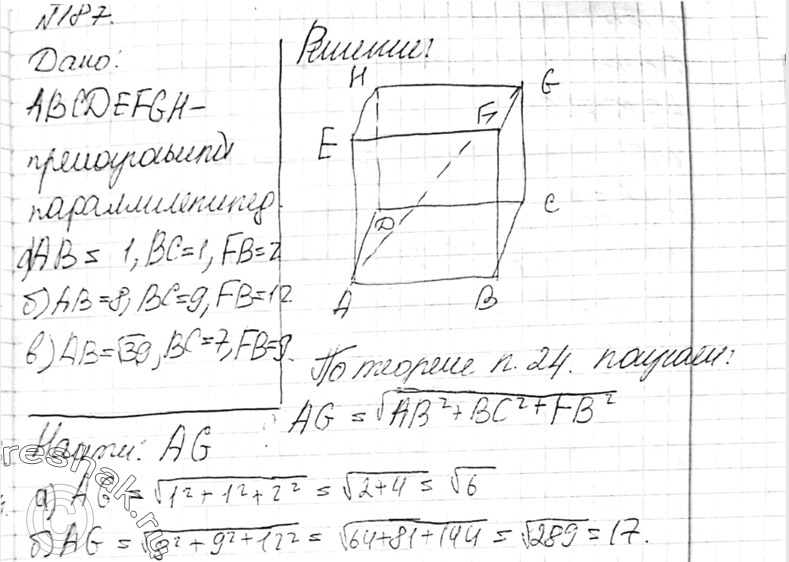 №187.
Дано:
ABCDEFGH –
прямоугольный
параллелепипед
а) AB = 1, BC=1, FB=2
б) AB=8, BC=9, FB=12
в) AB=√39, BC=7, FB=9.
Найти: AG
Решение:
H G
E F
D C
A B
По теореме п. 24. получаем:
AG = √AB²+BC²+FB²
а) AG = √1²+1²+2² = √2+4 = √6
б) AG = √8²+9²+12² = √64+81+144 = √289 = 17.
reshak.ru